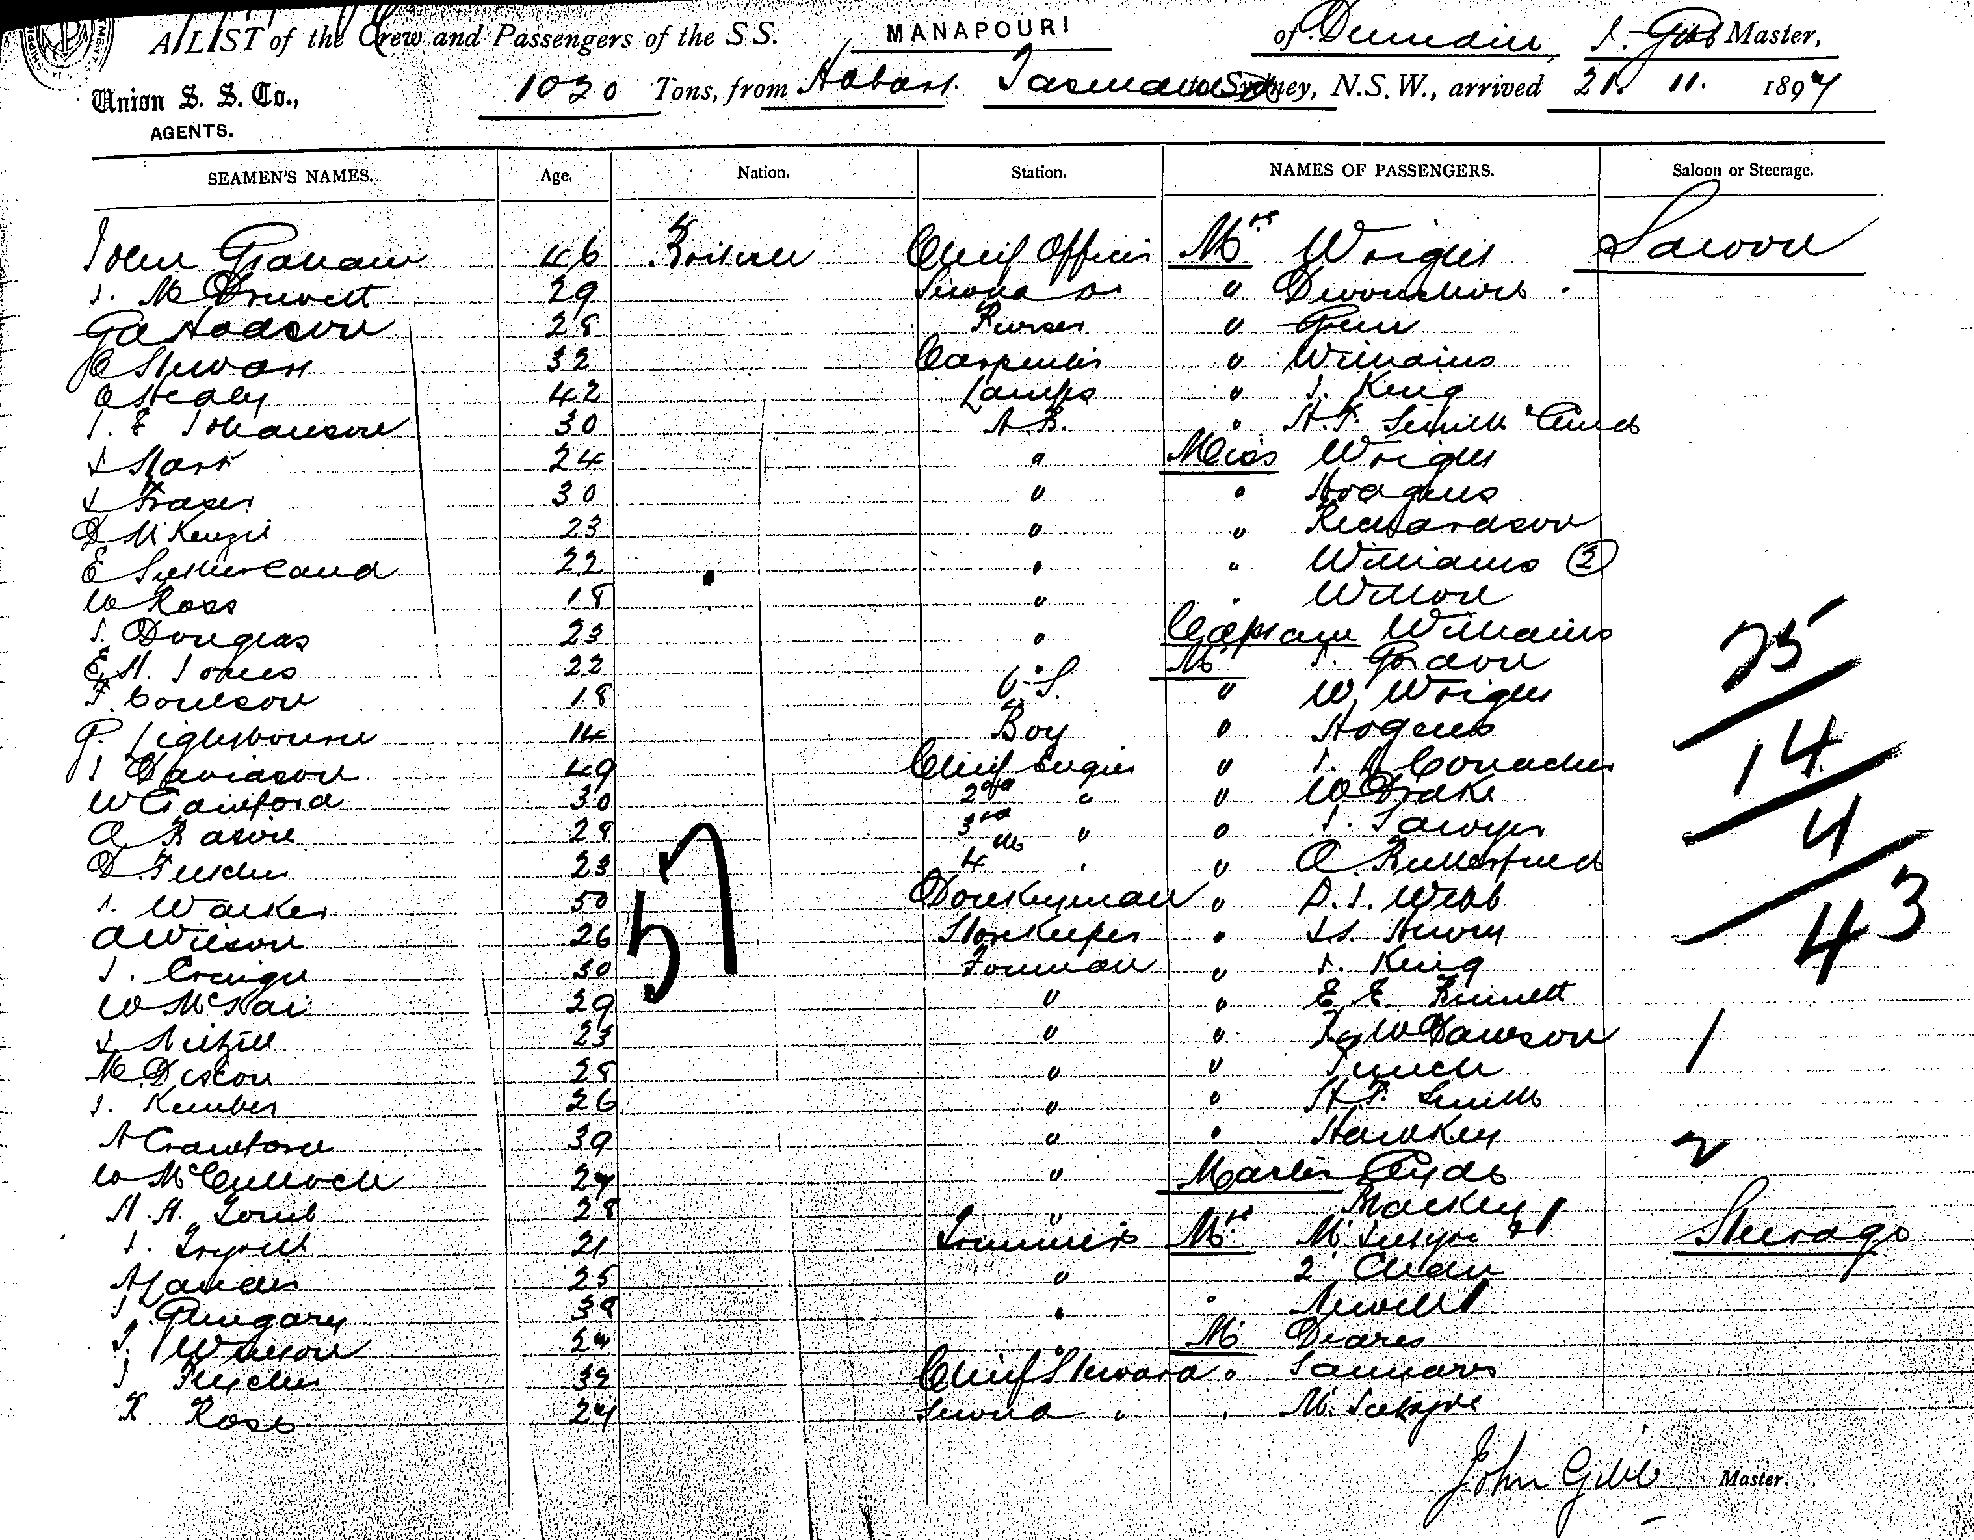 A LIST of the Crew and Passengers of the S.S. MANAPOURI of Dunedin, J. Gibb Master,
Union S. S. Co., 1020 Tons, from Hobart. Tasmania to Sydney, N.S.W., arrived 21. 11. 1897
AGENTS.
SEAMEN'S NAMES. Age. Nation. Station. NAMES OF PASSENGERS. Saloon or Steerage.
John Graham 46 British Chief Officer Mrs Wright Saloon
J. M Drewett 29 Second Do " Devonshire
Hodson 28 Purser " Gunn
Stewart 32 Carpenter " Williams
Healy 42 Lamps " J. King
J. E Johanson 30 A.B. " A. F. Smith & Child
J Stark 24 " Miss Wright
J Fraser 30 " " Hodgins
D McKenzie 23 " " Richardson
E Sutherland 22 " " Williams (2)
W Ross 18 " " Wilson
J. Douglas 23 " Captain Williams
E. H. Jones 22 " Mr J. Gordon 25
F Coulson 18 O.S. " W. Wright
P. Lightbourne 14 Boy " Hogens 14
J Davidson 49 Chief Engin " J. Conacher
W Crawford 30 2nd " " W Drake
28 3rd " " J. Sawyer 4
D Fletcher 23 4th " " Rutherford
J. Walker 50 Donkeyman " Webb 43
A Wilson 26 57 Storekeeper "
J. Craigie 30 Fireman " J. King
W McKai 29 " " E. E. Bennett
J 23 " " W Dawson 1
M Dixon 28 " " Lynch
J. Kember 26 " " H. F. Smith
A Crawford 39 " " Hawkey 2
W McCulloch 27 " Master Clyde
H. H. 28 " Mackey 1
J. 21 Trimmers Mrs McIntyre Steerage
25 " 2 Chan
J 38 " " Newell
J. Watson 24 Mr Deares
J Fletcher 32 Chief Steward "
R Ross 27 Second " " McIntyre
John Gibb Master.